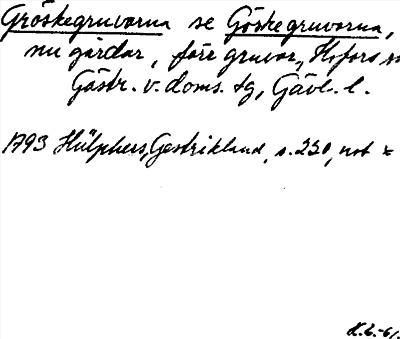 Gröskegruvorna se Göskegruvorna,
nu gårdar, förr gruvor, Hofors sn
Gästr. v. doms. tg, Gävl. l.
1793 Hülphers, Gestrikland, s. 230, not
K.L.-61.